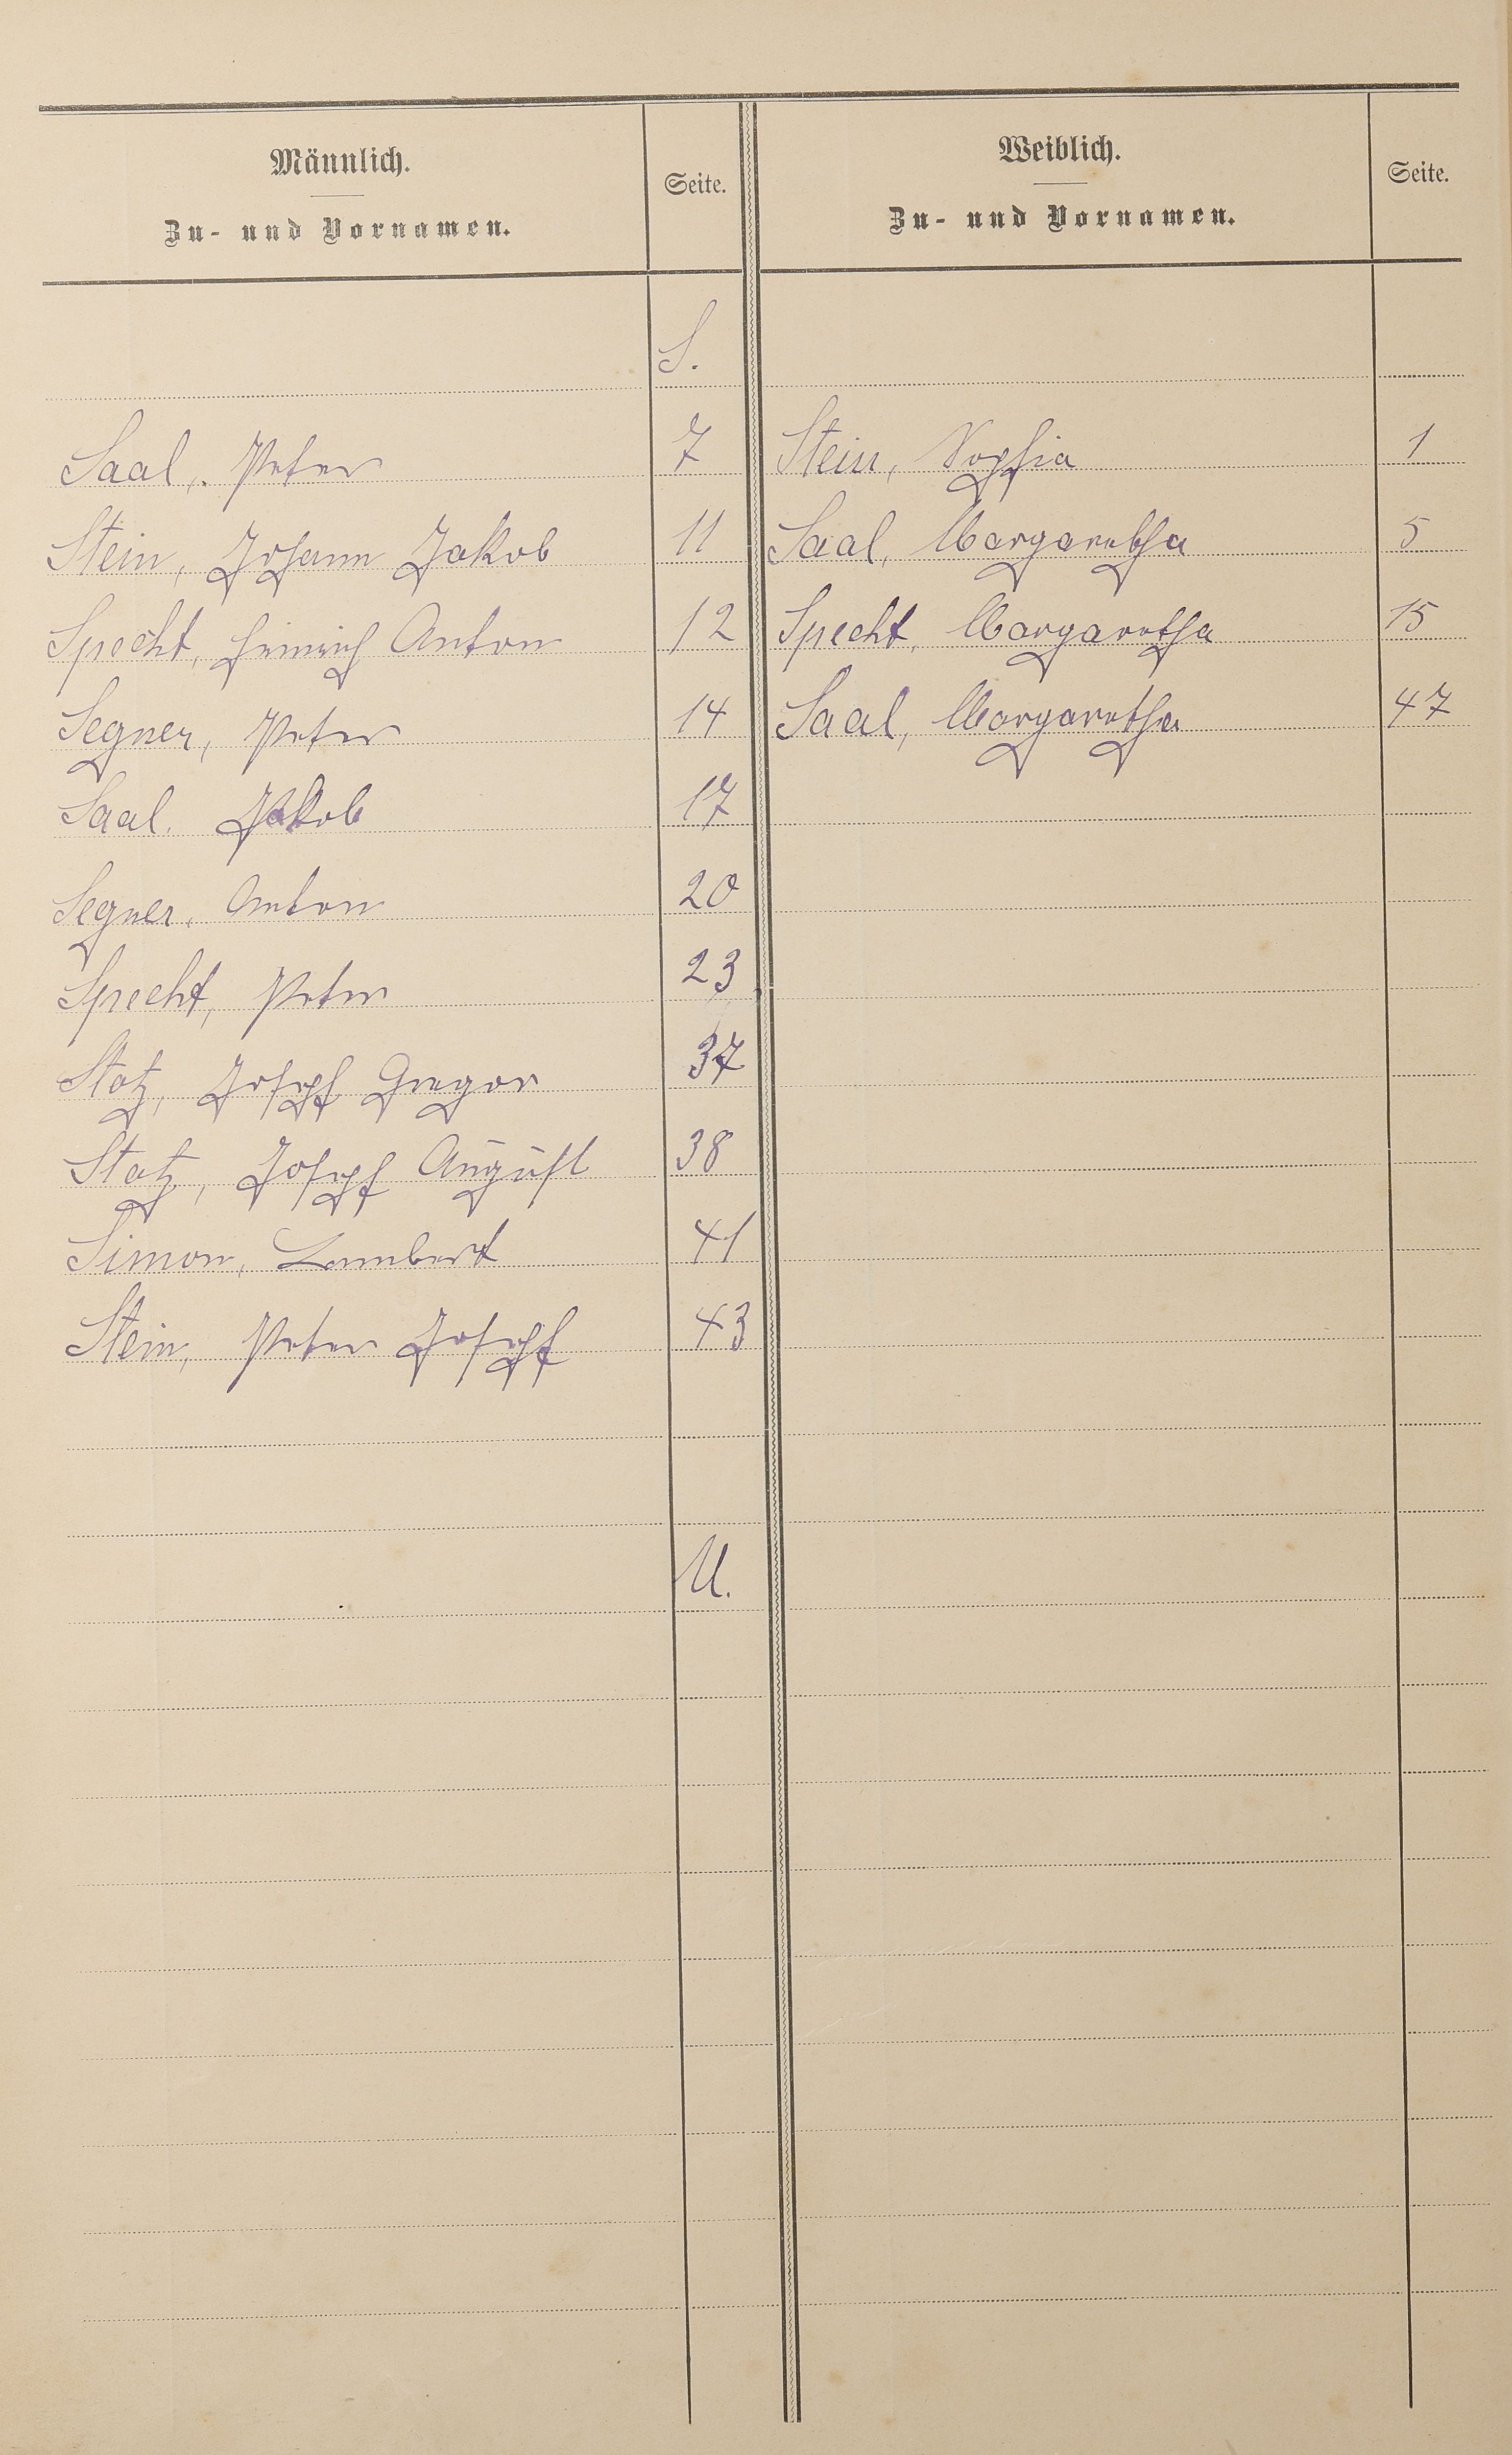 Männlich.
Zu- und Vornamen.
Seite.
Weiblich.
Zu- und Vornamen.
Seite.
S.
Saal, Peter 7 Stein, Sophia 1
Stein, Johann Jakob 11 Saal, Margaretha 5
Specht, Heinrich Anton 12 Specht, Margaretha 15
Segner, Peter 14 Saal, Margaretha 47
Saal, Jakob 17
Segner, Anton 20
Specht, Peter 23
Statz, Joseph Gregor 37
Statz, Joseph August 38
Simon, Lambert 41
Stein, Peter Joseph 43
U.